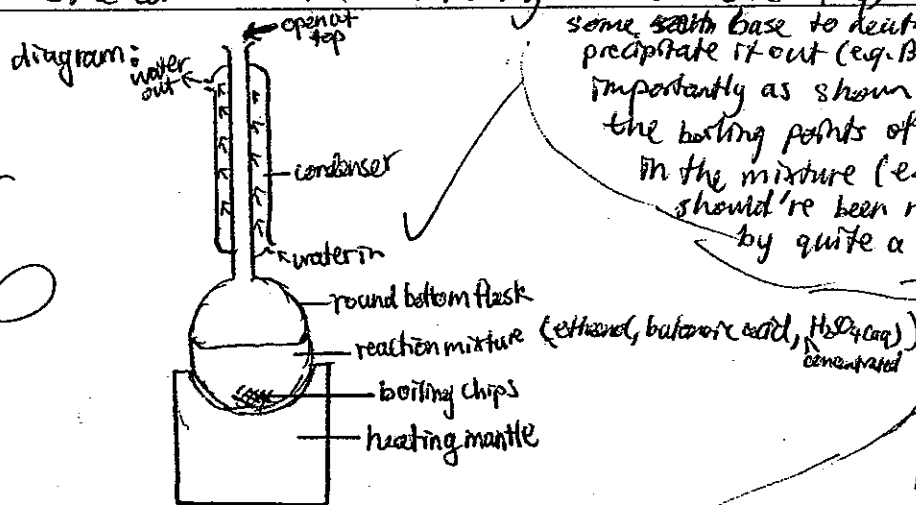 open at
top
diagram:
water
out
condenser
water in
round bottom flask
reaction mixture (ethanol, butanoic acid, H₂SO₄(aq))
concentrated
boiling chips
heating mantle
some base to
precipitate it out (e.g. B
importantly as shown
the boiling points of
in the mixture (e
should're been
by quite a